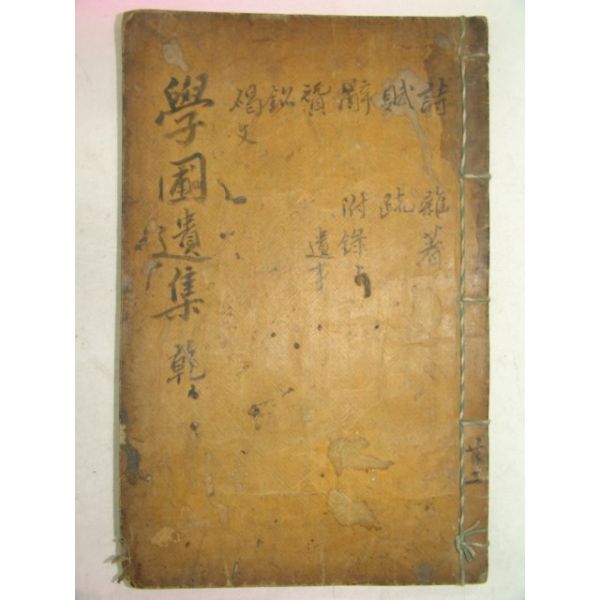 詩 雜著
賦 疏
辭 附錄
贊 遺事
銘
碣文
學圃遺集 乾
共二